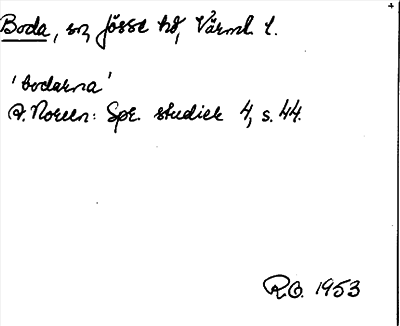 Boda, sn, Jösse hd, Värml. l.
'bodarna'
A. Noreen: Spr. studier 4, s. 44.
R.O. 1953